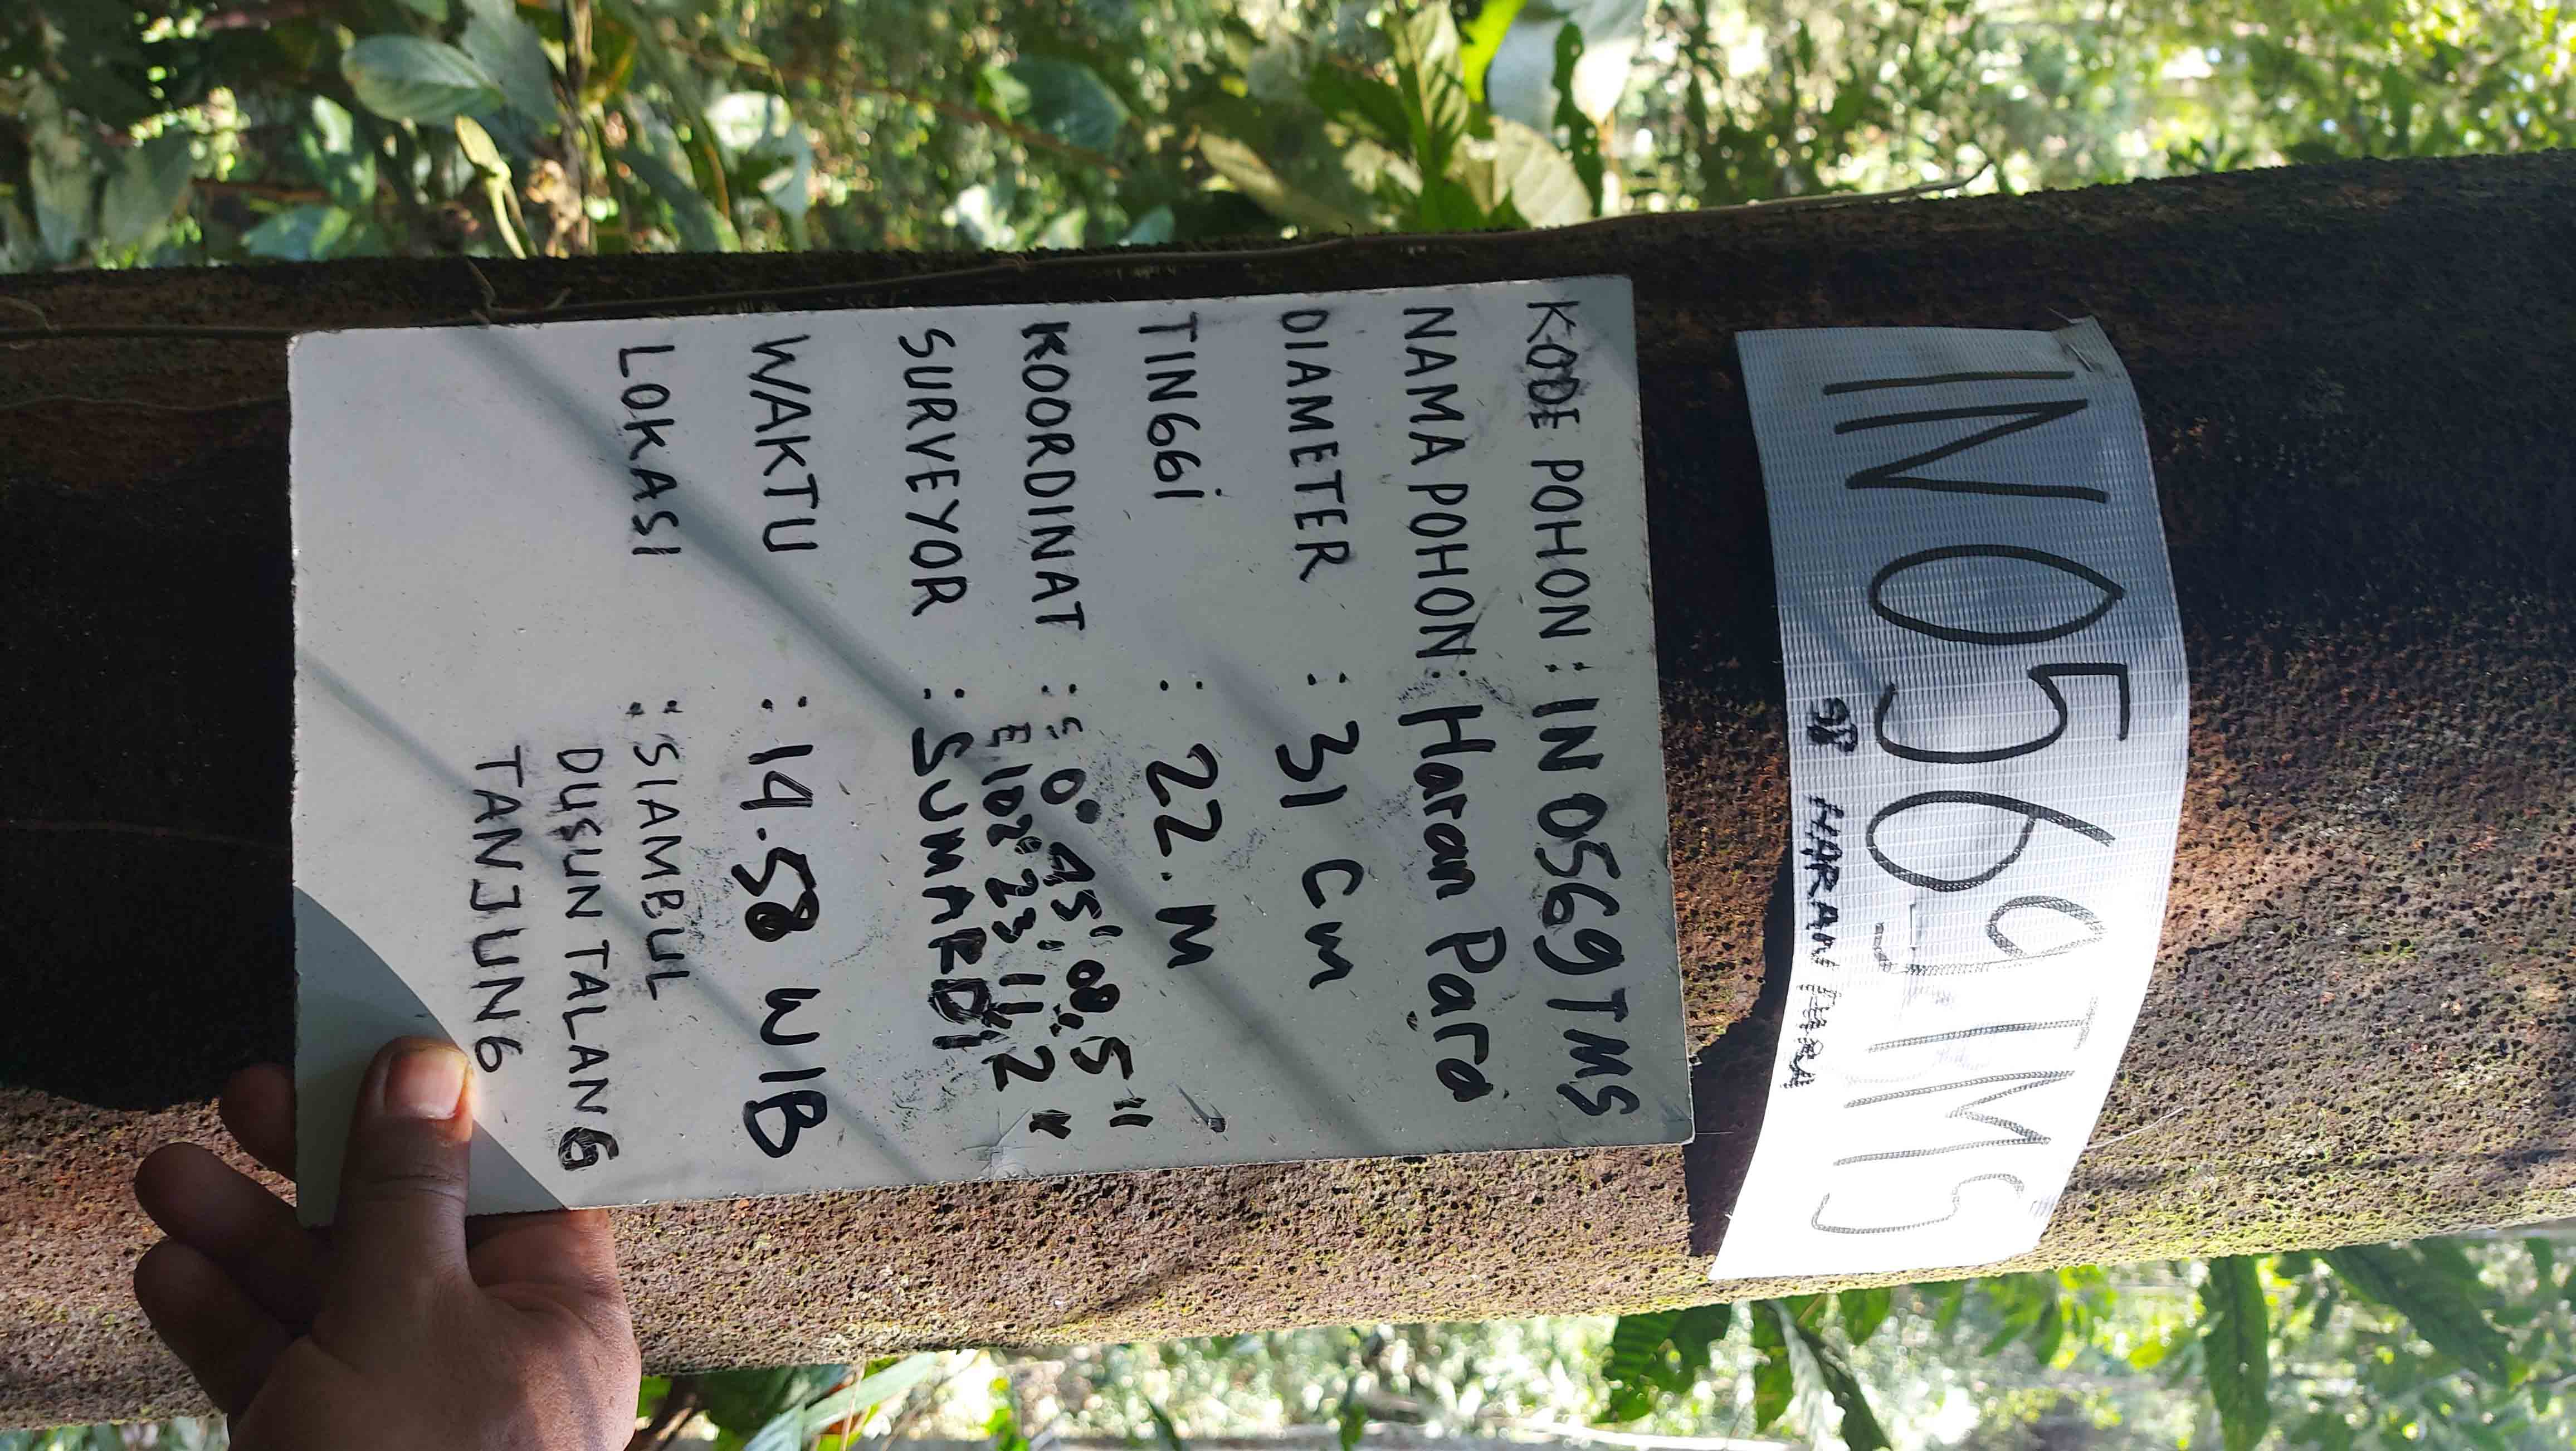 IN0569TMS
HARAN PARA
KODE POHON : IN 0569 TMS
NAMA POHON : Haran Para
DIAMETER : 31 Cm
TINGGi : 22.M
KOORDINAT : S 0° 45' 00,5"
E 102° 23' 11,2"
SURVEYOR : SUMARDI
WAKTU : 14.58 WIB
LOKASI : SIAMBUL
DUSUN TALANG
TANJUNG